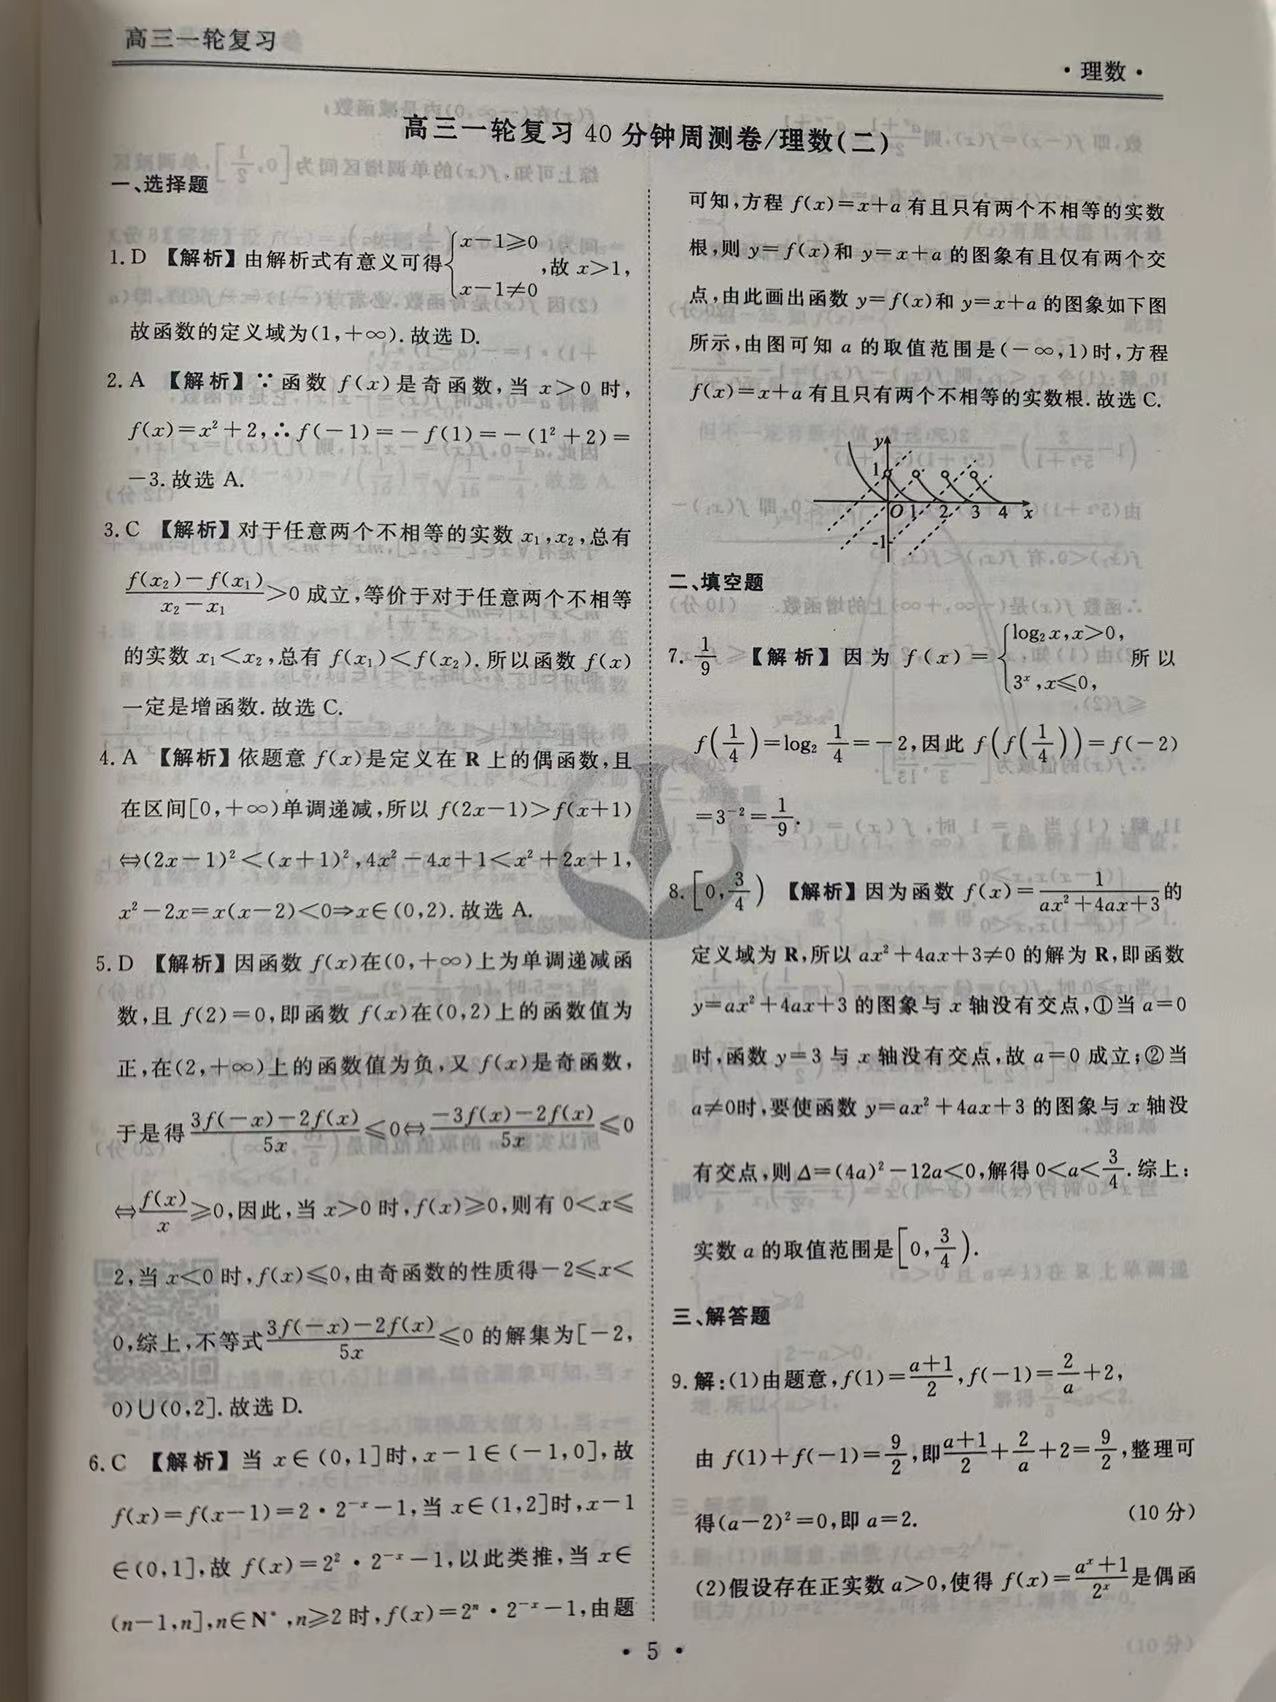 高三一轮复习
·理数·
高三一轮复习40分钟周测卷/理数(二)
一、选择题
1.D 【解析】由解析式有意义可得{x-1≥0, x-1≠0,故 x>1,
故函数的定义域为(1,+∞).故选 D.
2.A 【解析】∵函数 f(x)是奇函数,当 x>0 时,
f(x)=x²+2,∴f(-1)=-f(1)=-(1²+2)=
-3.故选 A.
3.C 【解析】对于任意两个不相等的实数 x₁,x₂,总有
(f(x₂)-f(x₁))/(x₂-x₁)>0 成立,等价于对于任意两个不相等
的实数 x₁<x₂,总有 f(x₁)<f(x₂).所以函数 f(x)
一定是增函数.故选 C.
4.A 【解析】依题意 f(x)是定义在 R 上的偶函数,且
在区间[0,+∞)单调递减,所以 f(2x-1)>f(x+1)
⇔(2x-1)²<(x+1)²,4x²-4x+1<x²+2x+1,
x²-2x=x(x-2)<0⇒x∈(0,2).故选 A.
5.D 【解析】因函数 f(x)在(0,+∞)上为单调递减函
数,且 f(2)=0,即函数 f(x)在(0,2)上的函数值为
正,在(2,+∞)上的函数值为负,又 f(x)是奇函数,
于是得(3f(-x)-2f(x))/5x≤0⇔(-3f(x)-2f(x))/5x≤0
⇔f(x)/x≥0,因此,当 x>0 时,f(x)≥0,则有 0<x≤
2,当 x<0 时,f(x)≤0,由奇函数的性质得-2≤x<
0,综上,不等式(3f(-x)-2f(x))/5x≤0 的解集为[-2,
0)∪(0,2].故选 D.
6.C 【解析】当 x∈(0,1]时,x-1∈(-1,0],故
f(x)=f(x-1)=2·2⁻ˣ-1,当 x∈(1,2]时,x-1
∈(0,1],故 f(x)=2²·2⁻ˣ-1,以此类推,当 x∈
(n-1,n],n∈N*,n≥2 时,f(x)=2ⁿ·2⁻ˣ-1,由题
可知,方程 f(x)=x+a 有且只有两个不相等的实数
根,则 y=f(x)和 y=x+a 的图象有且仅有两个交
点,由此画出函数 y=f(x)和 y=x+a 的图象如下图
所示,由图可知 a 的取值范围是(-∞,1)时,方程
f(x)=x+a 有且只有两个不相等的实数根.故选 C.
y
1
O 1 2 3 4 x
-1
二、填空题
7. 1/9 【解析】因为 f(x)={log₂x,x>0, 3ˣ,x≤0, 所以
f(1/4)=log₂ 1/4=-2,因此 f(f(1/4))=f(-2)
=3⁻²=1/9.
8.[0,3/4) 【解析】因为函数 f(x)=1/(ax²+4ax+3)的
定义域为 R,所以 ax²+4ax+3≠0 的解为 R,即函数
y=ax²+4ax+3 的图象与 x 轴没有交点,①当 a=0
时,函数 y=3 与 x 轴没有交点,故 a=0 成立;②当
a≠0时,要使函数 y=ax²+4ax+3 的图象与 x 轴没
有交点,则Δ=(4a)²-12a<0,解得 0<a<3/4.综上:
实数 a 的取值范围是[0,3/4).
三、解答题
9.解:(1)由题意,f(1)=(a+1)/2,f(-1)=2/a+2,
由 f(1)+f(-1)=9/2,即(a+1)/2+2/a+2=9/2,整理可
得(a-2)²=0,即 a=2. (10 分)
(2)假设存在正实数 a>0,使得 f(x)=(aˣ+1)/2ˣ是偶函
·5·